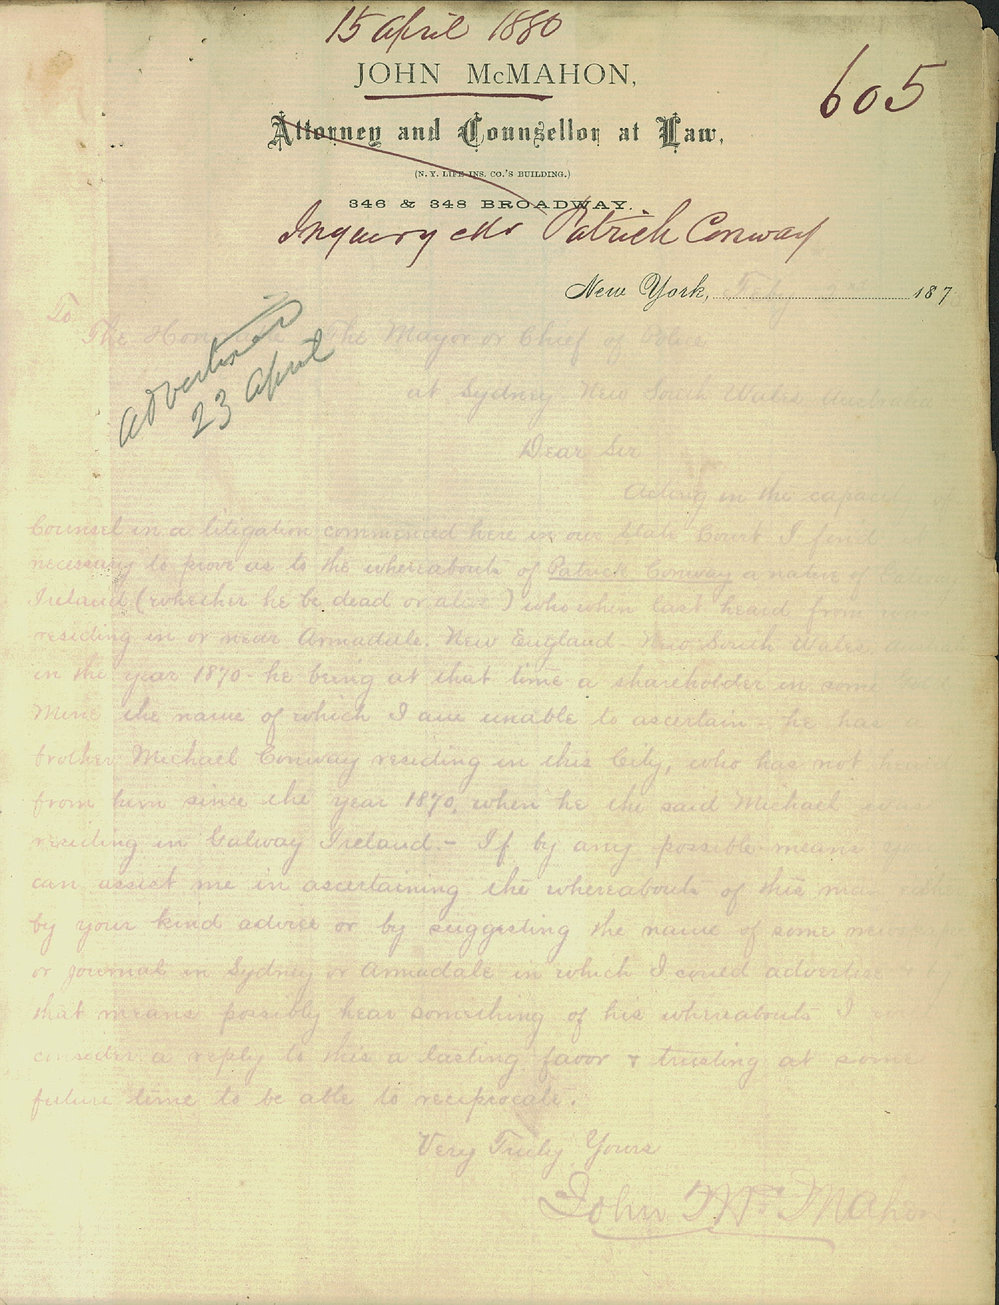 15 April 1880
605
JOHN McMAHON,
Attorney and Counsellor at Law,
(N. Y. LIFE INS. CO.'S BUILDING.)
346 & 348 BROADWAY.
Inquiry Mr Patrick Conway
New York, 187
Advertised
23 April
To
The Honorable The Mayor or Chief of Police
at Sydney New South Wales
Dear Sir
Acting in the capacity of
Counsel in a litigation commenced here in our State Court I find it
necessary to prove as to the whereabouts of Patrick Conway a native of
Ireland (whether he be dead or alive) who when last heard from was
residing in or near Armadale. New England New South Wales,
in the year 1870 - he being at that time a shareholder in some Gold
Mine the name of which I am unable to ascertain - he has a
brother Michael Conway residing in this City, who has not heard
from him since the year 1870, when he the said Michael was
residing in Galway Ireland. - If by any possible means you
can assist me in ascertaining the whereabouts of this man either
by your kind advice or by suggesting the name of some newspaper
or journal in Sydney or Armadale in which I could advertise & by
that means possibly hear something of his whereabouts I will
consider a reply to this a lasting favor & trusting at some
future time to be able to reciprocate.
Very Truly Yours
John McMahon.